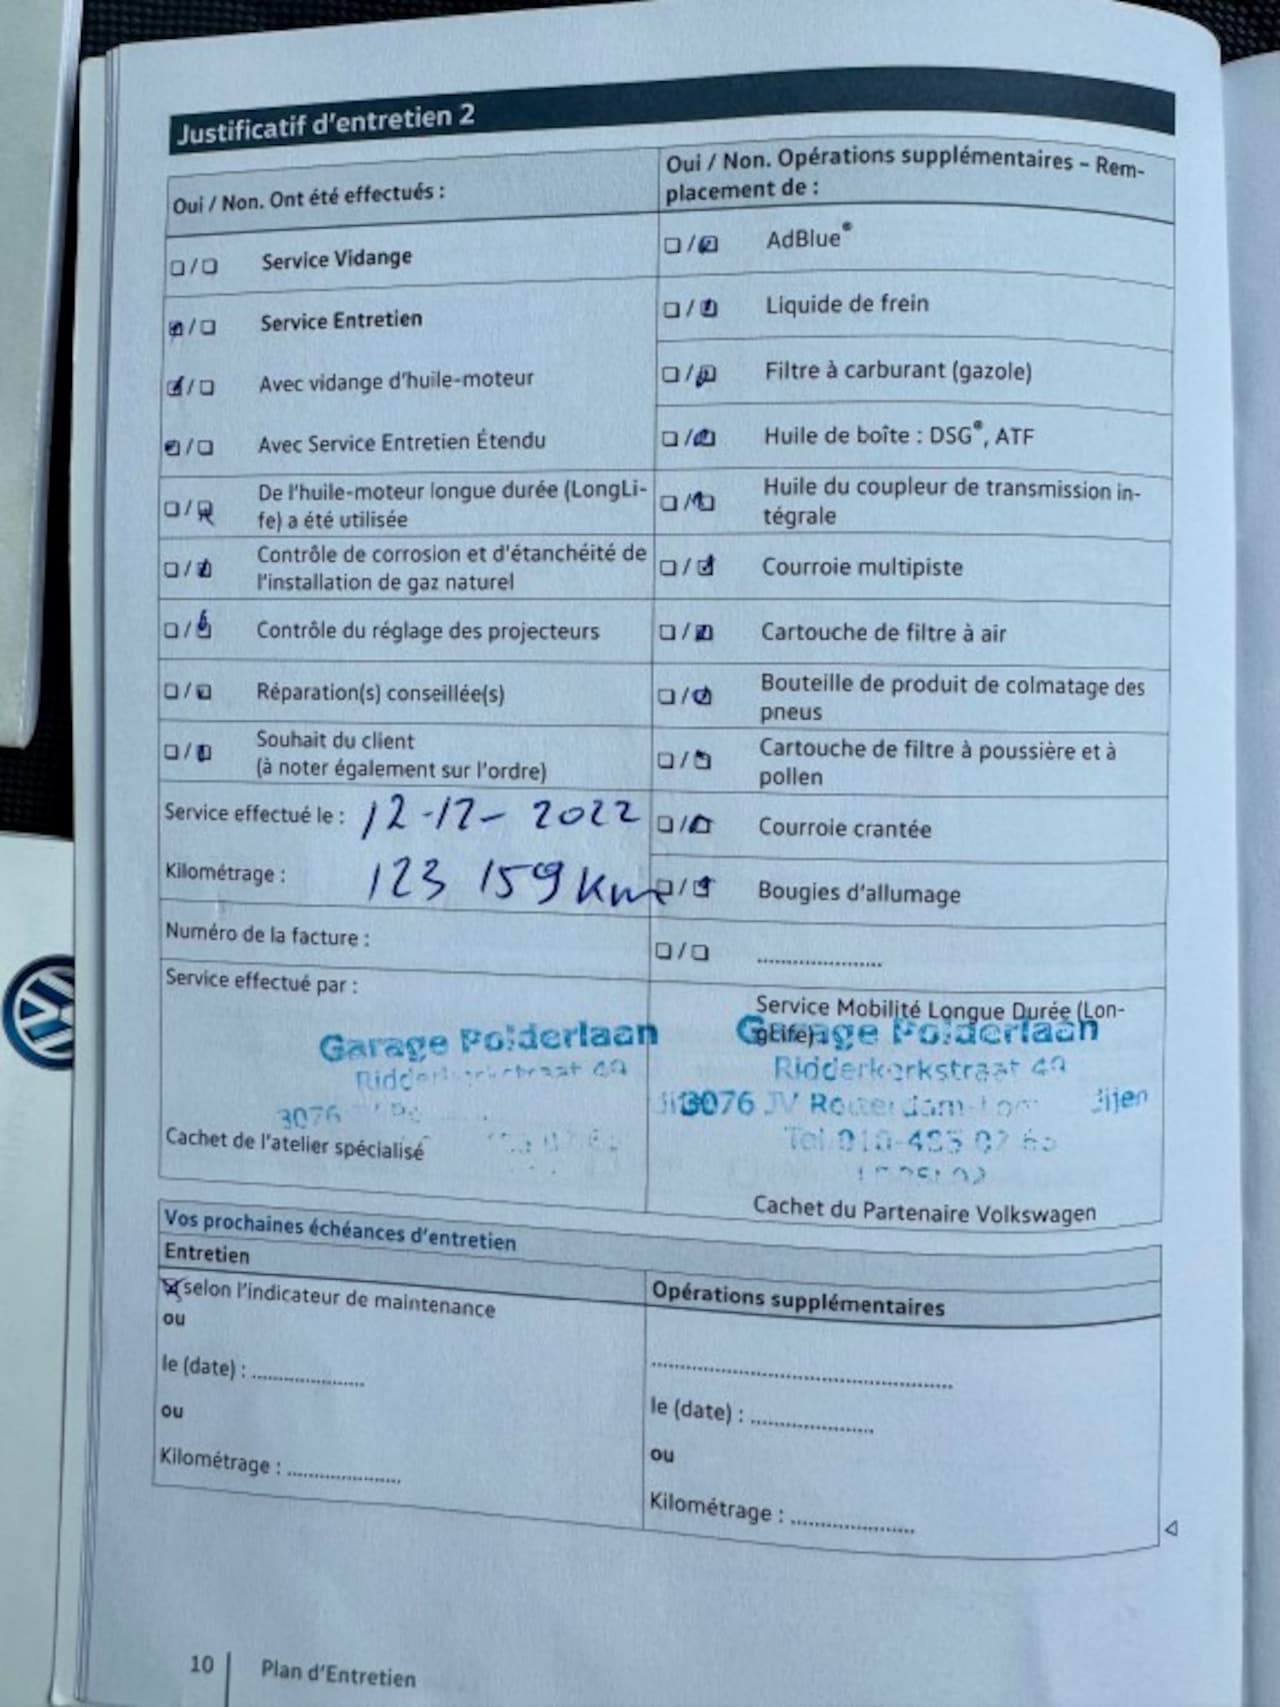 Justificatif d'entretien 2
Oui / Non. Ont été effectués :
Service Vidange
Service Entretien
Avec vidange d'huile-moteur
Avec Service Entretien Étendu
De l'huile-moteur longue durée (LongLi-
fe) a été utilisée
Contrôle de corrosion et d'étanchéité de
l'installation de gaz naturel
Contrôle du réglage des projecteurs
Réparation(s) conseillée(s)
Souhait du client
(à noter également sur l'ordre)
Service effectué le : 12-12-2022
Kilométrage : 123 159 Km
Numéro de la facture :
Service effectué par :
Garage Polderlaan
Ridderkerkstraat 49
3076
Cachet de l'atelier spécialisé
Oui / Non. Opérations supplémentaires – Rem-
placement de :
AdBlue®
Liquide de frein
Filtre à carburant (gazole)
Huile de boîte : DSG®, ATF
Huile du coupleur de transmission in-
tégrale
Courroie multipiste
Cartouche de filtre à air
Bouteille de produit de colmatage des
pneus
Cartouche de filtre à poussière et à
pollen
Courroie crantée
Bougies d'allumage
....................
Service Mobilité Longue Durée (Lon-
gLife) :
Garage Polderlaan
Ridderkerkstraat 49
3076 JV Rotterdam
Tel. 010-
Cachet du Partenaire Volkswagen
Vos prochaines échéances d'entretien
Entretien
selon l'indicateur de maintenance
ou
le (date) : ..................
ou
Kilométrage : ..................
Opérations supplémentaires
................................................
le (date) : ....................
ou
Kilométrage : ....................
10 Plan d'Entretien